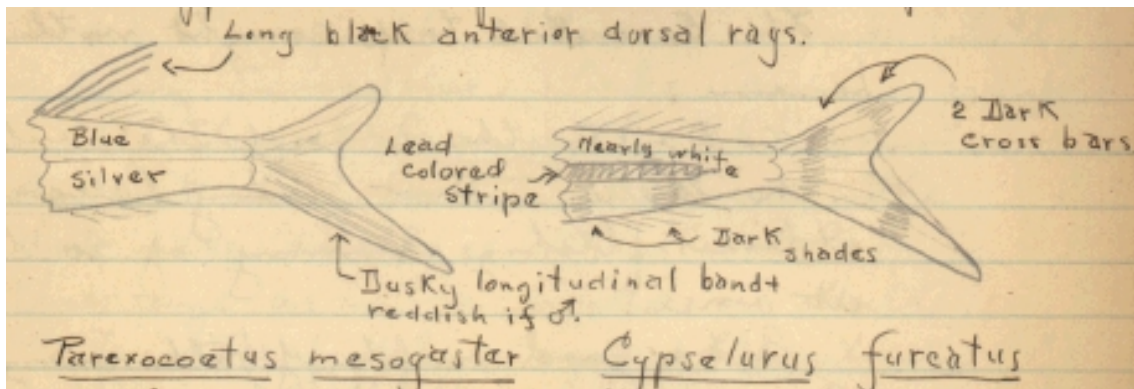 Long black anterior dorsal rays.
Blue
Silver
Lead
colored
stripe
Nearly white
2 Dark
cross bars
Dark
shades
Dusky longitudinal band +
reddish if ♂.
Parexocoetus mesogaster
Cypselurus furcatus